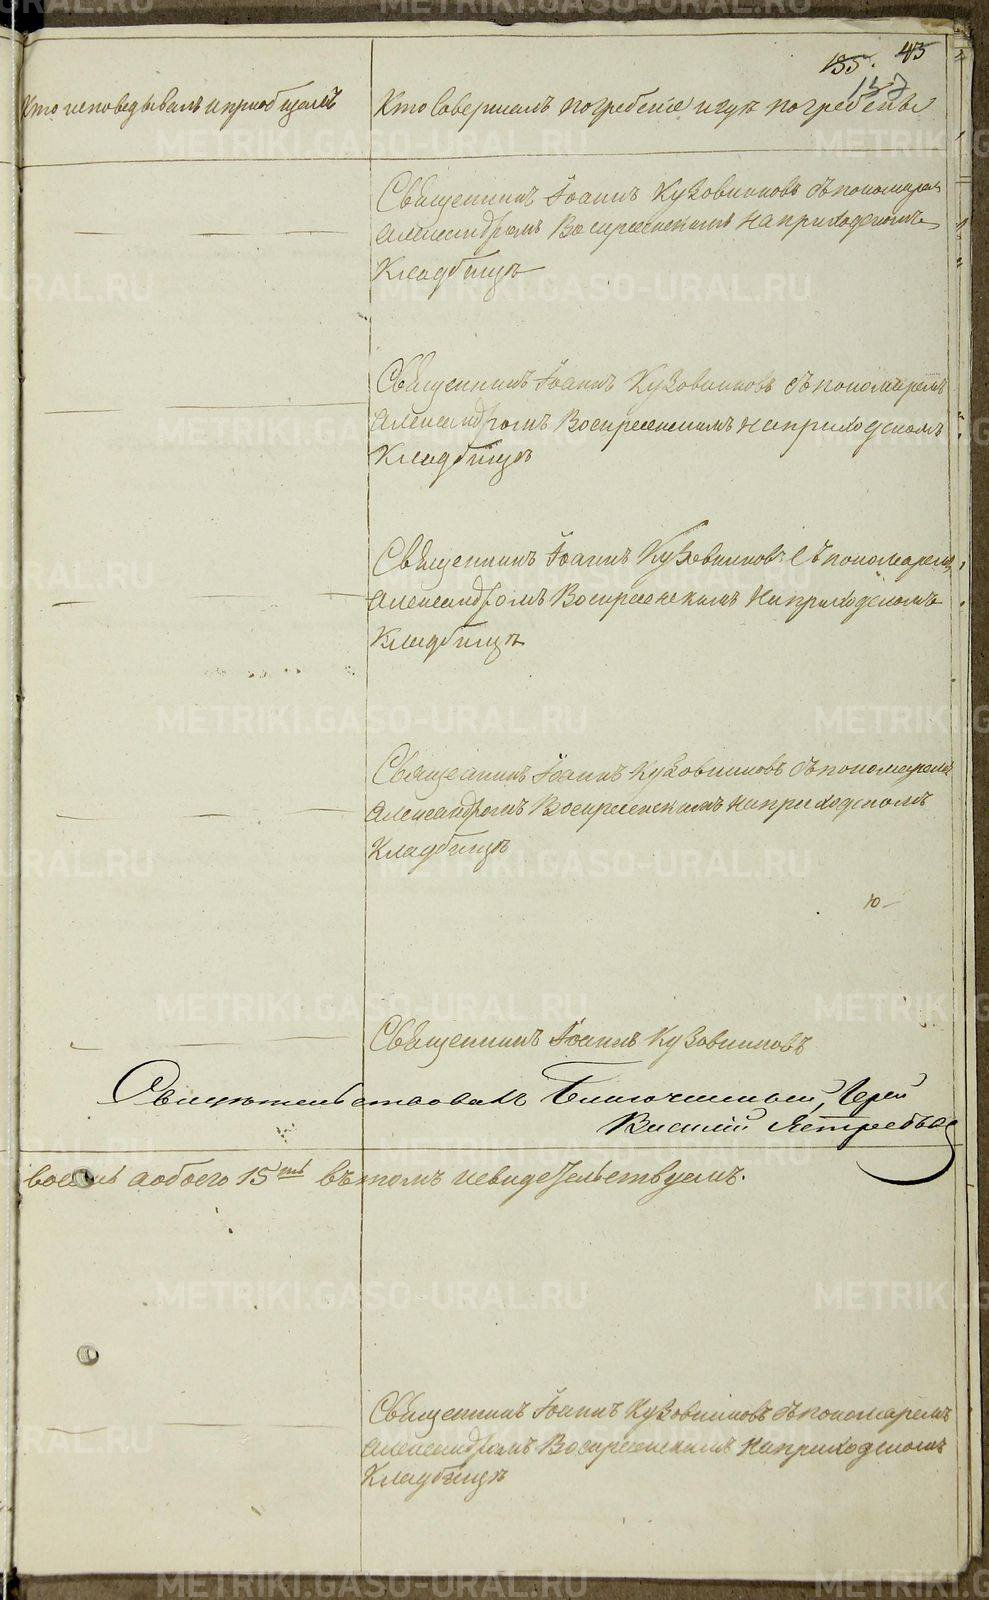 155. 45
157
Кто исповедывалъ и приобщалъ
Кто совершалъ погребенїе и гдѣ погребены
Священникъ Іоаннъ Кузовниковъ съ пономаремъ
Александромъ Воскресенскимъ на приходскомъ
Кладбищѣ
Священникъ Іоаннъ Кузовниковъ съ пономаремъ
Александромъ Воскресенскимъ на приходскомъ
Кладбищѣ
Священникъ Іоаннъ Кузовниковъ съ пономаремъ
Александромъ Воскресенскимъ на приходскомъ
Кладбищѣ
Священникъ Іоаннъ Кузовниковъ съ пономаремъ
Александромъ Воскресенскимъ на приходскомъ
Кладбищѣ
Священникъ Іоаннъ Кузовниковъ
Свидѣтельствовалъ Благочинный, Іерей
Василій Ястребовъ
обоего 15ть въ томъ и свидетельствуемъ.
Священникъ Іоаннъ Кузовниковъ съ пономаремъ
Александромъ Воскресенскимъ на приходскомъ
Кладбищѣ
METRIKI.GASO-URAL.RU